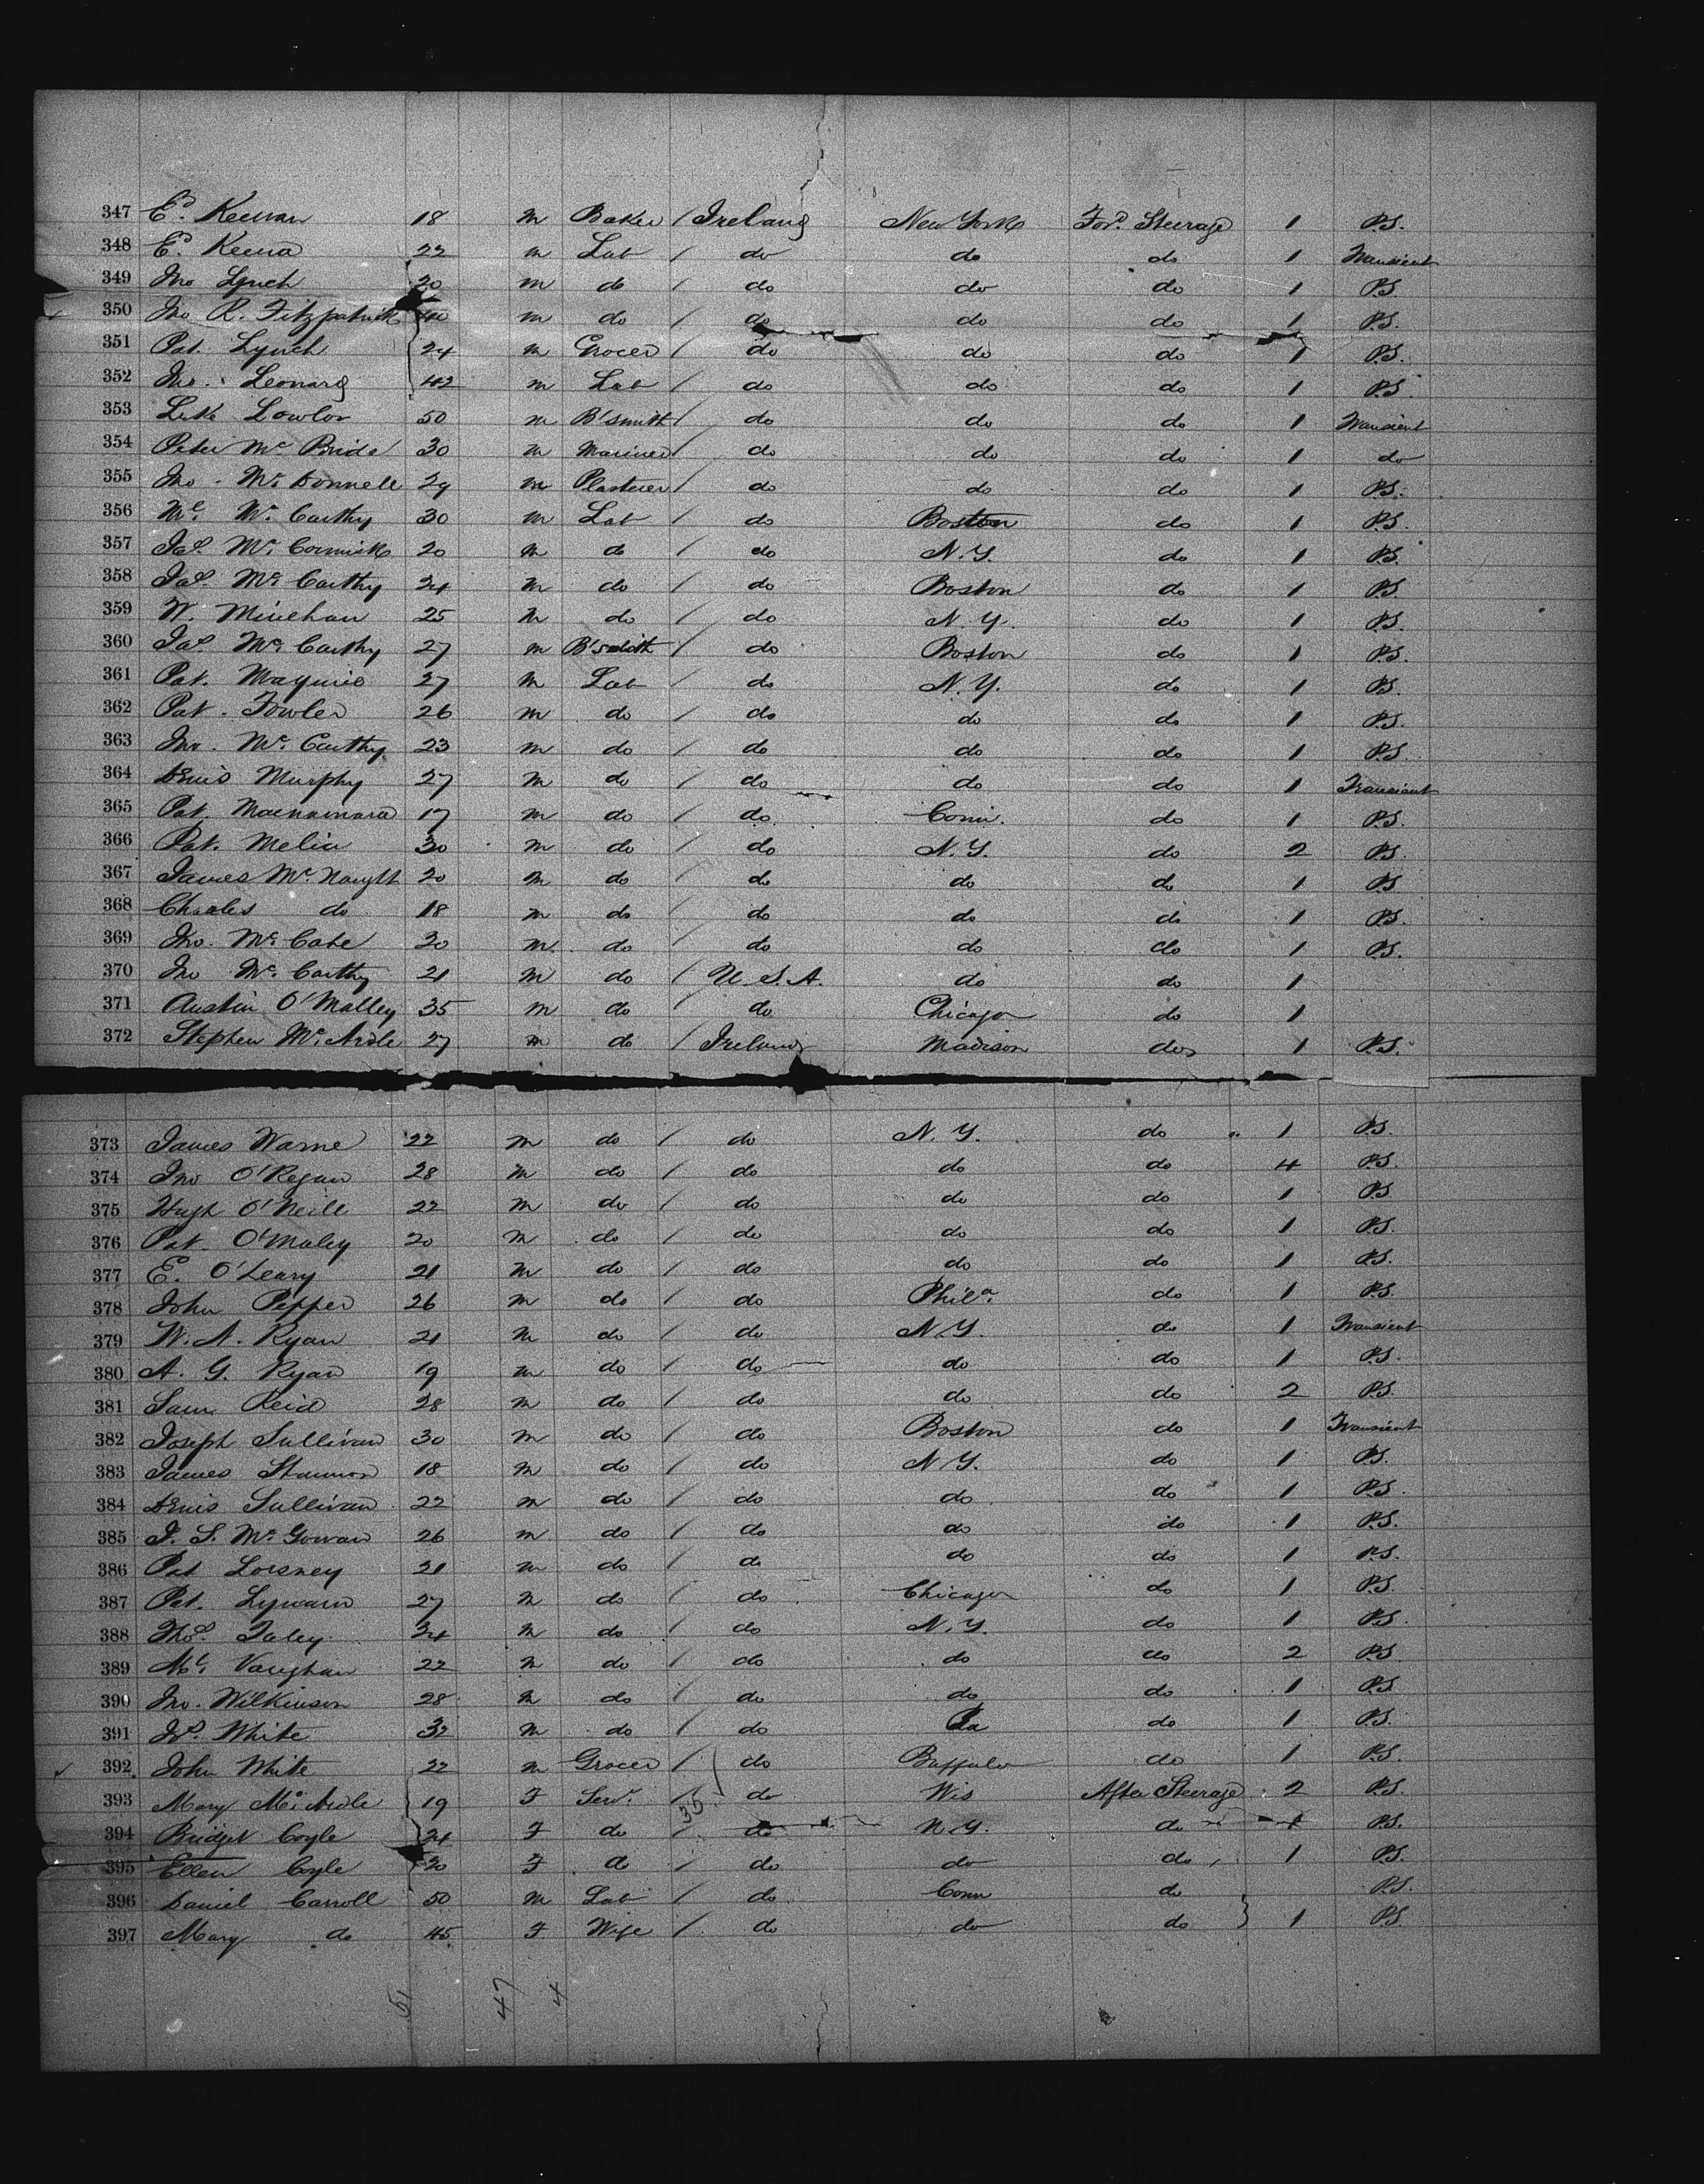 347 Ed. Keenan 18 m Baker / Ireland New York For'd Steerage 1 P.S.
348 Ed. Keena 22 m Lab / do do do 1 Transient
349 Jno Lynch 20 m do / do do do 1 P.S.
350 Jno R. Fitzpatrick 40 m do / do do do 1 P.S.
351 Pat. Lynch 24 m Grocer / do do do 1 P.S.
352 Jno. Leonard 42 m Lab / do do do 1 P.S.
353 Luke Lawlor 50 m B'smith / do do do 1 Transient
354 Peter McBride 30 m Mariner / do do do 1 do
355 Jno. McDonnell 29 m Plasterer / do do do 1 P.S.
356 Ml. McCarthy 30 m Lab / do Boston do 1 P.S.
357 Jas. McCormick 20 m do / do N.Y. do 1 P.S.
358 Jas. McCarthy 24 m do / do Boston do 1 P.S.
359 W. Minehan 25 m do / do N.Y. do 1 P.S.
360 Jas. McCarthy 27 m B'smith / do Boston do 1 P.S.
361 Pat. Maguire 27 m Lab / do N.Y. do 1 P.S.
362 Pat. Fowler 26 m do / do do do 1 P.S.
363 Jno. McCarthy 23 m do / do do do 1 P.S.
364 Denis Murphy 27 m do / do do do 1 Transient
365 Pat. Macnamara 17 m do / do Conn. do 1 P.S.
366 Pat. Melia 30 m do / do N.Y. do 2 P.S.
367 James McNaught 20 m do / do do do 1 P.S
368 Charles do 18 m do / do do do 1 P.S.
369 Jno. McCabe 30 m do / do do do 1 P.S.
370 Jno McCarthy 21 m do / U.S.A. do do 1
371 Austin O'Malley 35 m do / do Chicago do 1
372 Stephen McArdle 27 m do / Ireland Madison do 1 P.S.
373 James Warne 22 m do / do N.Y. do 1 P.S.
374 Jno O'Regan 28 m do / do do do 4 P.S.
375 Hugh O'Neill 22 m do / do do do 1 P.S
376 Pat. O'Maley 20 m do / do do do 1 P.S.
377 E. O'Leary 21 m do / do do do 1 P.S.
378 John Pepper 26 m do / do Phila. do 1 P.S.
379 W. A. Ryan 21 m do / do N.Y. do 1 Transient
380 A. G. Ryan 19 m do / do do do 1 P.S.
381 Sam Reid 28 m do / do do do 2 P.S.
382 Joseph Sullivan 30 m do / do Boston do 1 Transient
383 James Shannon 18 m do / do N.Y. do 1 P.S.
384 Denis Sullivan 22 m do / do do do 1 P.S.
385 J. S. McGowan 26 m do / do do do 1 P.S.
386 Pat Lorsney 21 m do / do do do 1 P.S.
387 Pat. Lynam 27 m do / do Chicago do 1 P.S.
388 Thos. Faley 34 m do / do N.Y. do 1 P.S.
389 Ml. Vaughan 22 m do / do do do 2 P.S
390 Jno. Wilkinson 28 m do / do do do 1 P.S
391 White 32 m do / do Pa do 1 P.S.
392 John White 22 m Grocer / do Buffalo do 1 P.S.
393 Mary McArdle 19 F Serv. / do Wis After Steerage 2 P.S.
394 Bridget Coyle 24 F do / do N.Y. do 1 P.S.
395 Ellen Coyle 20 F do / do do do 1 P.S.
396 Daniel Carroll 50 m Lab / do Conn do P.S.
397 Mary do 45 F Wife / do do do } 1 P.S
35
51 47 4